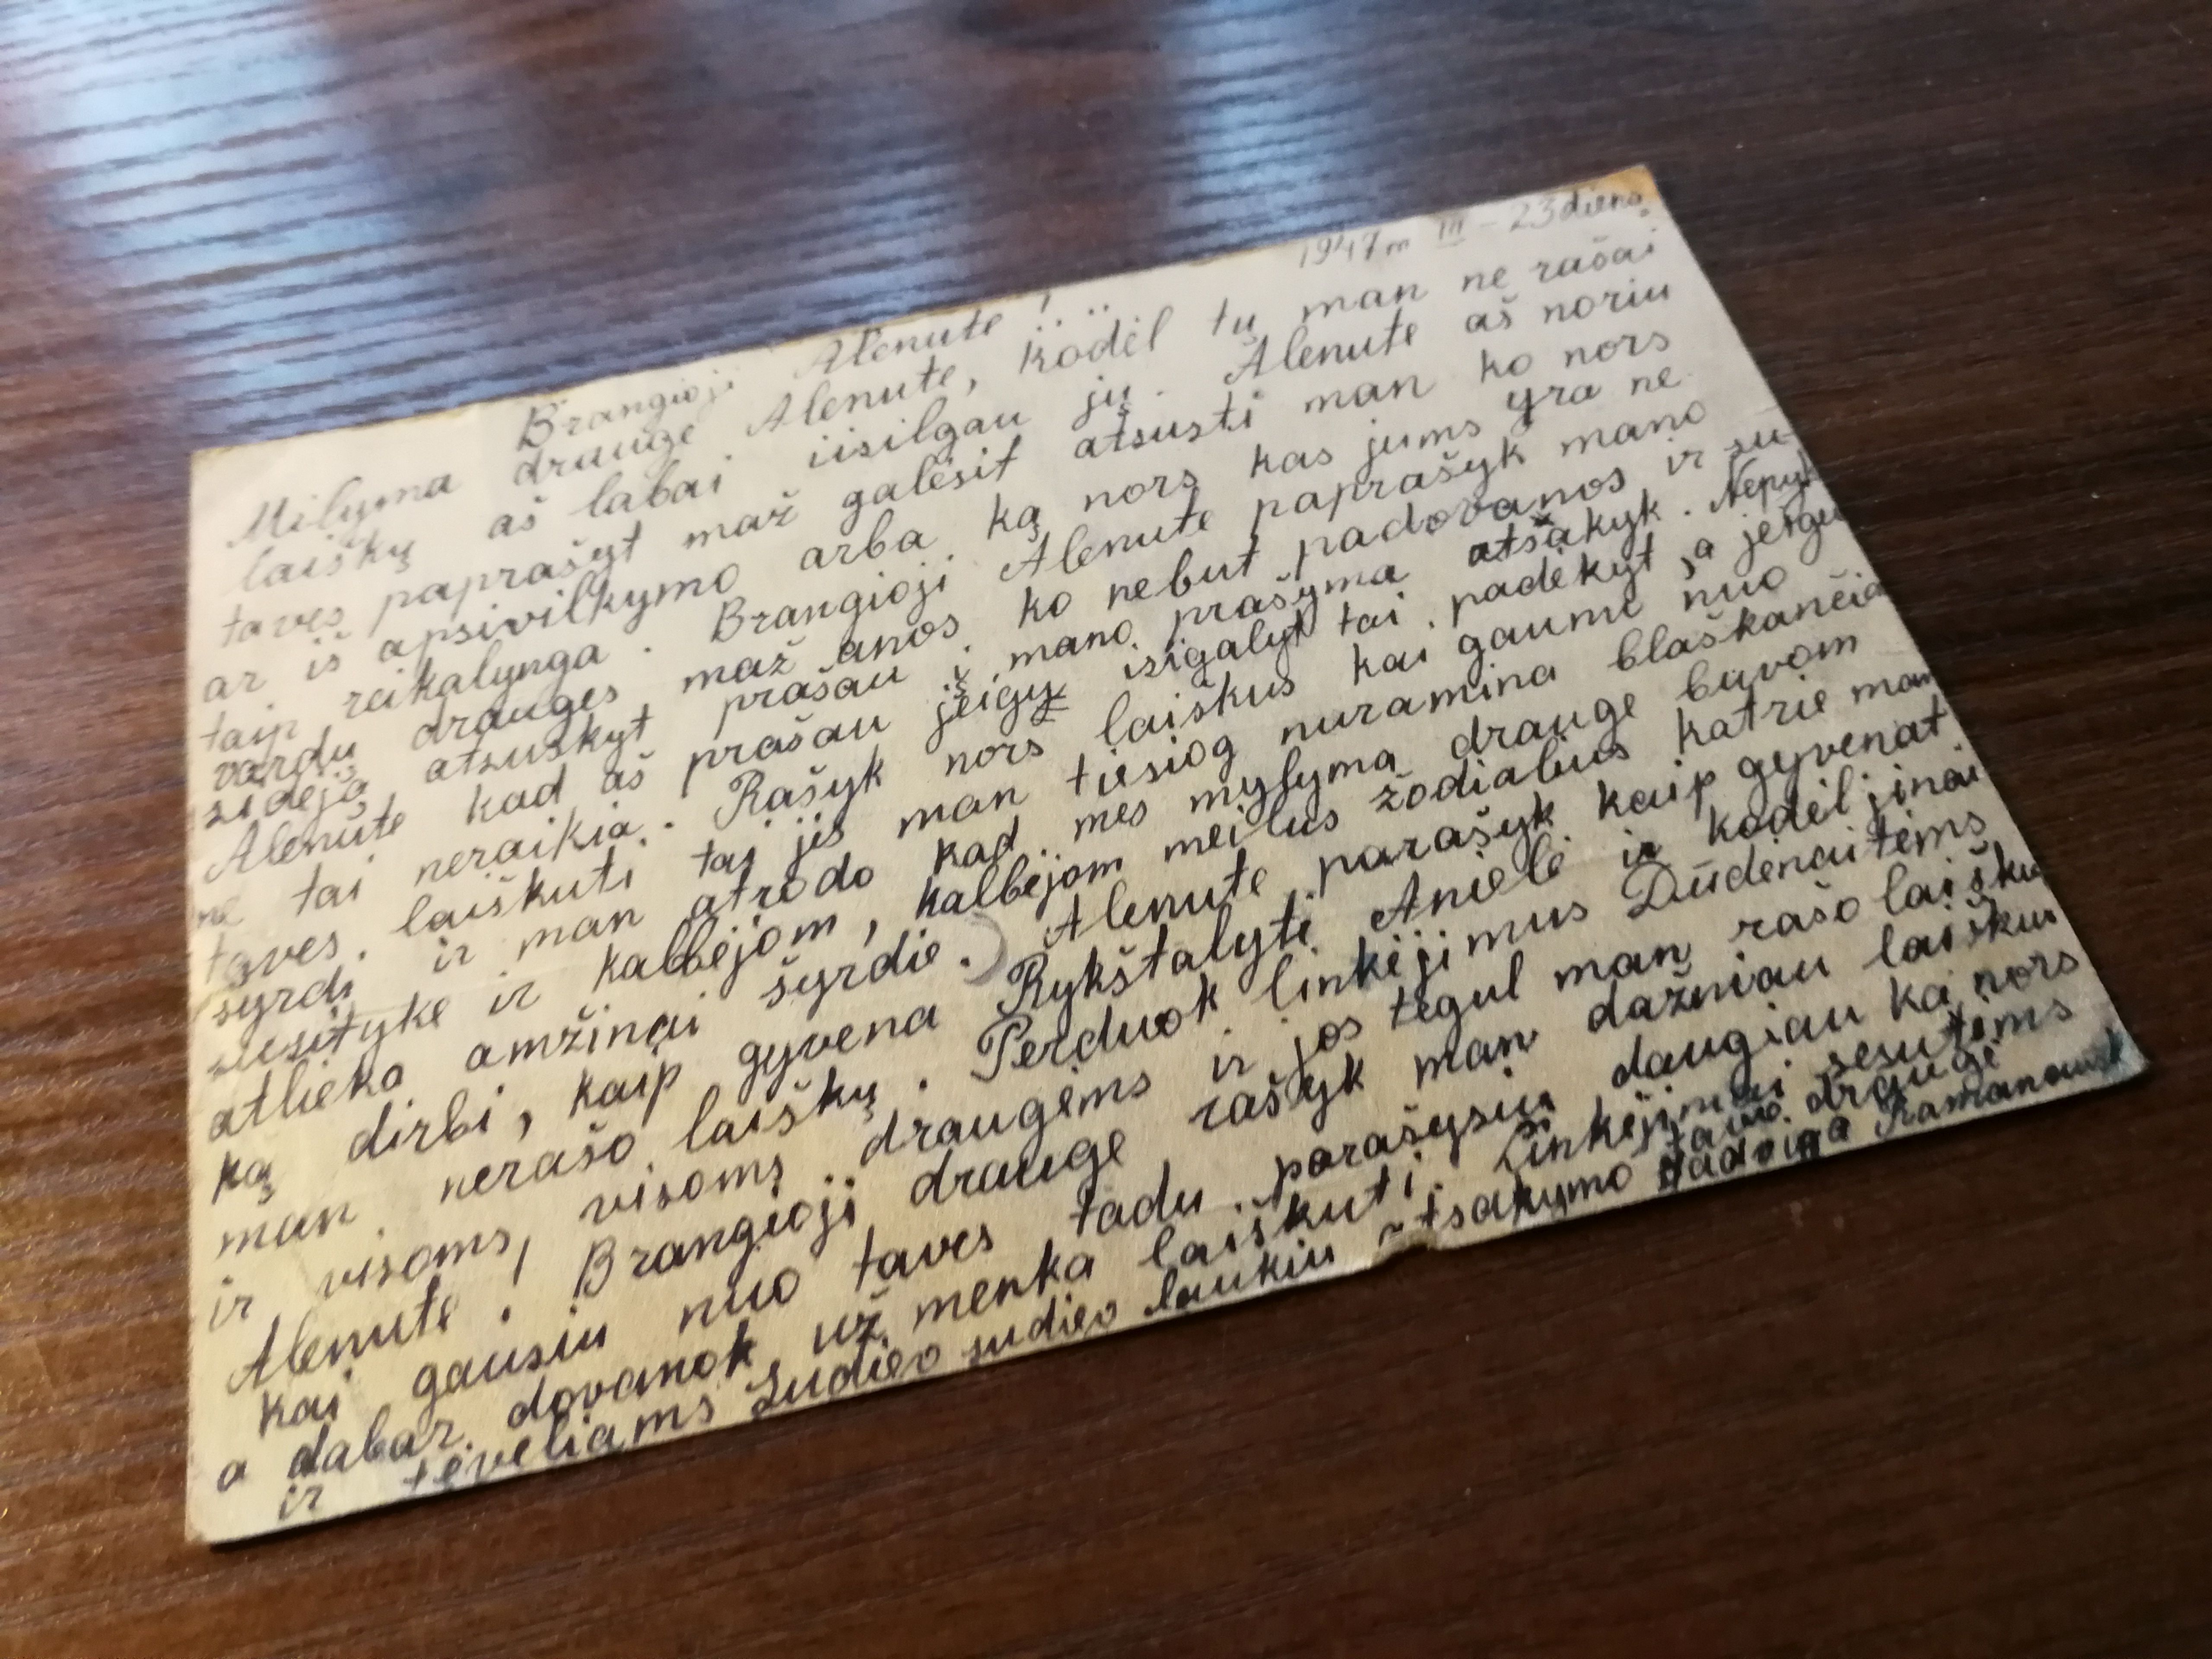 1947m III - 23 diena
Brangioji Alenute!
Milyma drauge Alenute, kodėl tu man ne rašai
laiškų aš labai iisilgau jų. Alenute aš noriu
taves paprašyt maž galėsit atsusti man ko nors
ar iš apsivilkymo arba ką nors kas jums yra ne
taip reikalynga. Brangioji Alenute paprašyk mano
vardu drauges maž anos ko nebut padovanos ir su-
sidėją atsuskyt prašau mano prašyma atsakyk. Nepyk
Alenute kad aš prašau jeigy isigalyt tai padėkyt, a jeigu
ne tai neraikia. Rašyk nors laiškus kai gaumi nuo
taves laiškuti tai jis man tiesiog nuramina blaškančia
syrdi ir man atrodo kad mes mylyma drauge buvom
susitykė ir kalbėjom, kalbėjom meilus žodialius katrie man
atlieka amžinai šyrdie. Alenute parašyk kaip gyvenat
ką dirbi, kaip gyvena Rykštalyti Anielė ir kodėl jinai
man nerašo laiškų. Perduok linkėjimus Dūdėnaitėms
ir visoms, visoms draugėms ir jos tegul man rašo laišku
Alenute! Brangioji drauge rašyk man dažniau laiškus
kai gausiu nuo taves tadu parašysiu daugiau ka nors
a dabar dovanok už menka laiškuti. Linkėjimai sesutėms
ir tėveliams Sudiev sudiev laukiu atsakymo tavo draugė
Jadviga Ramanausk